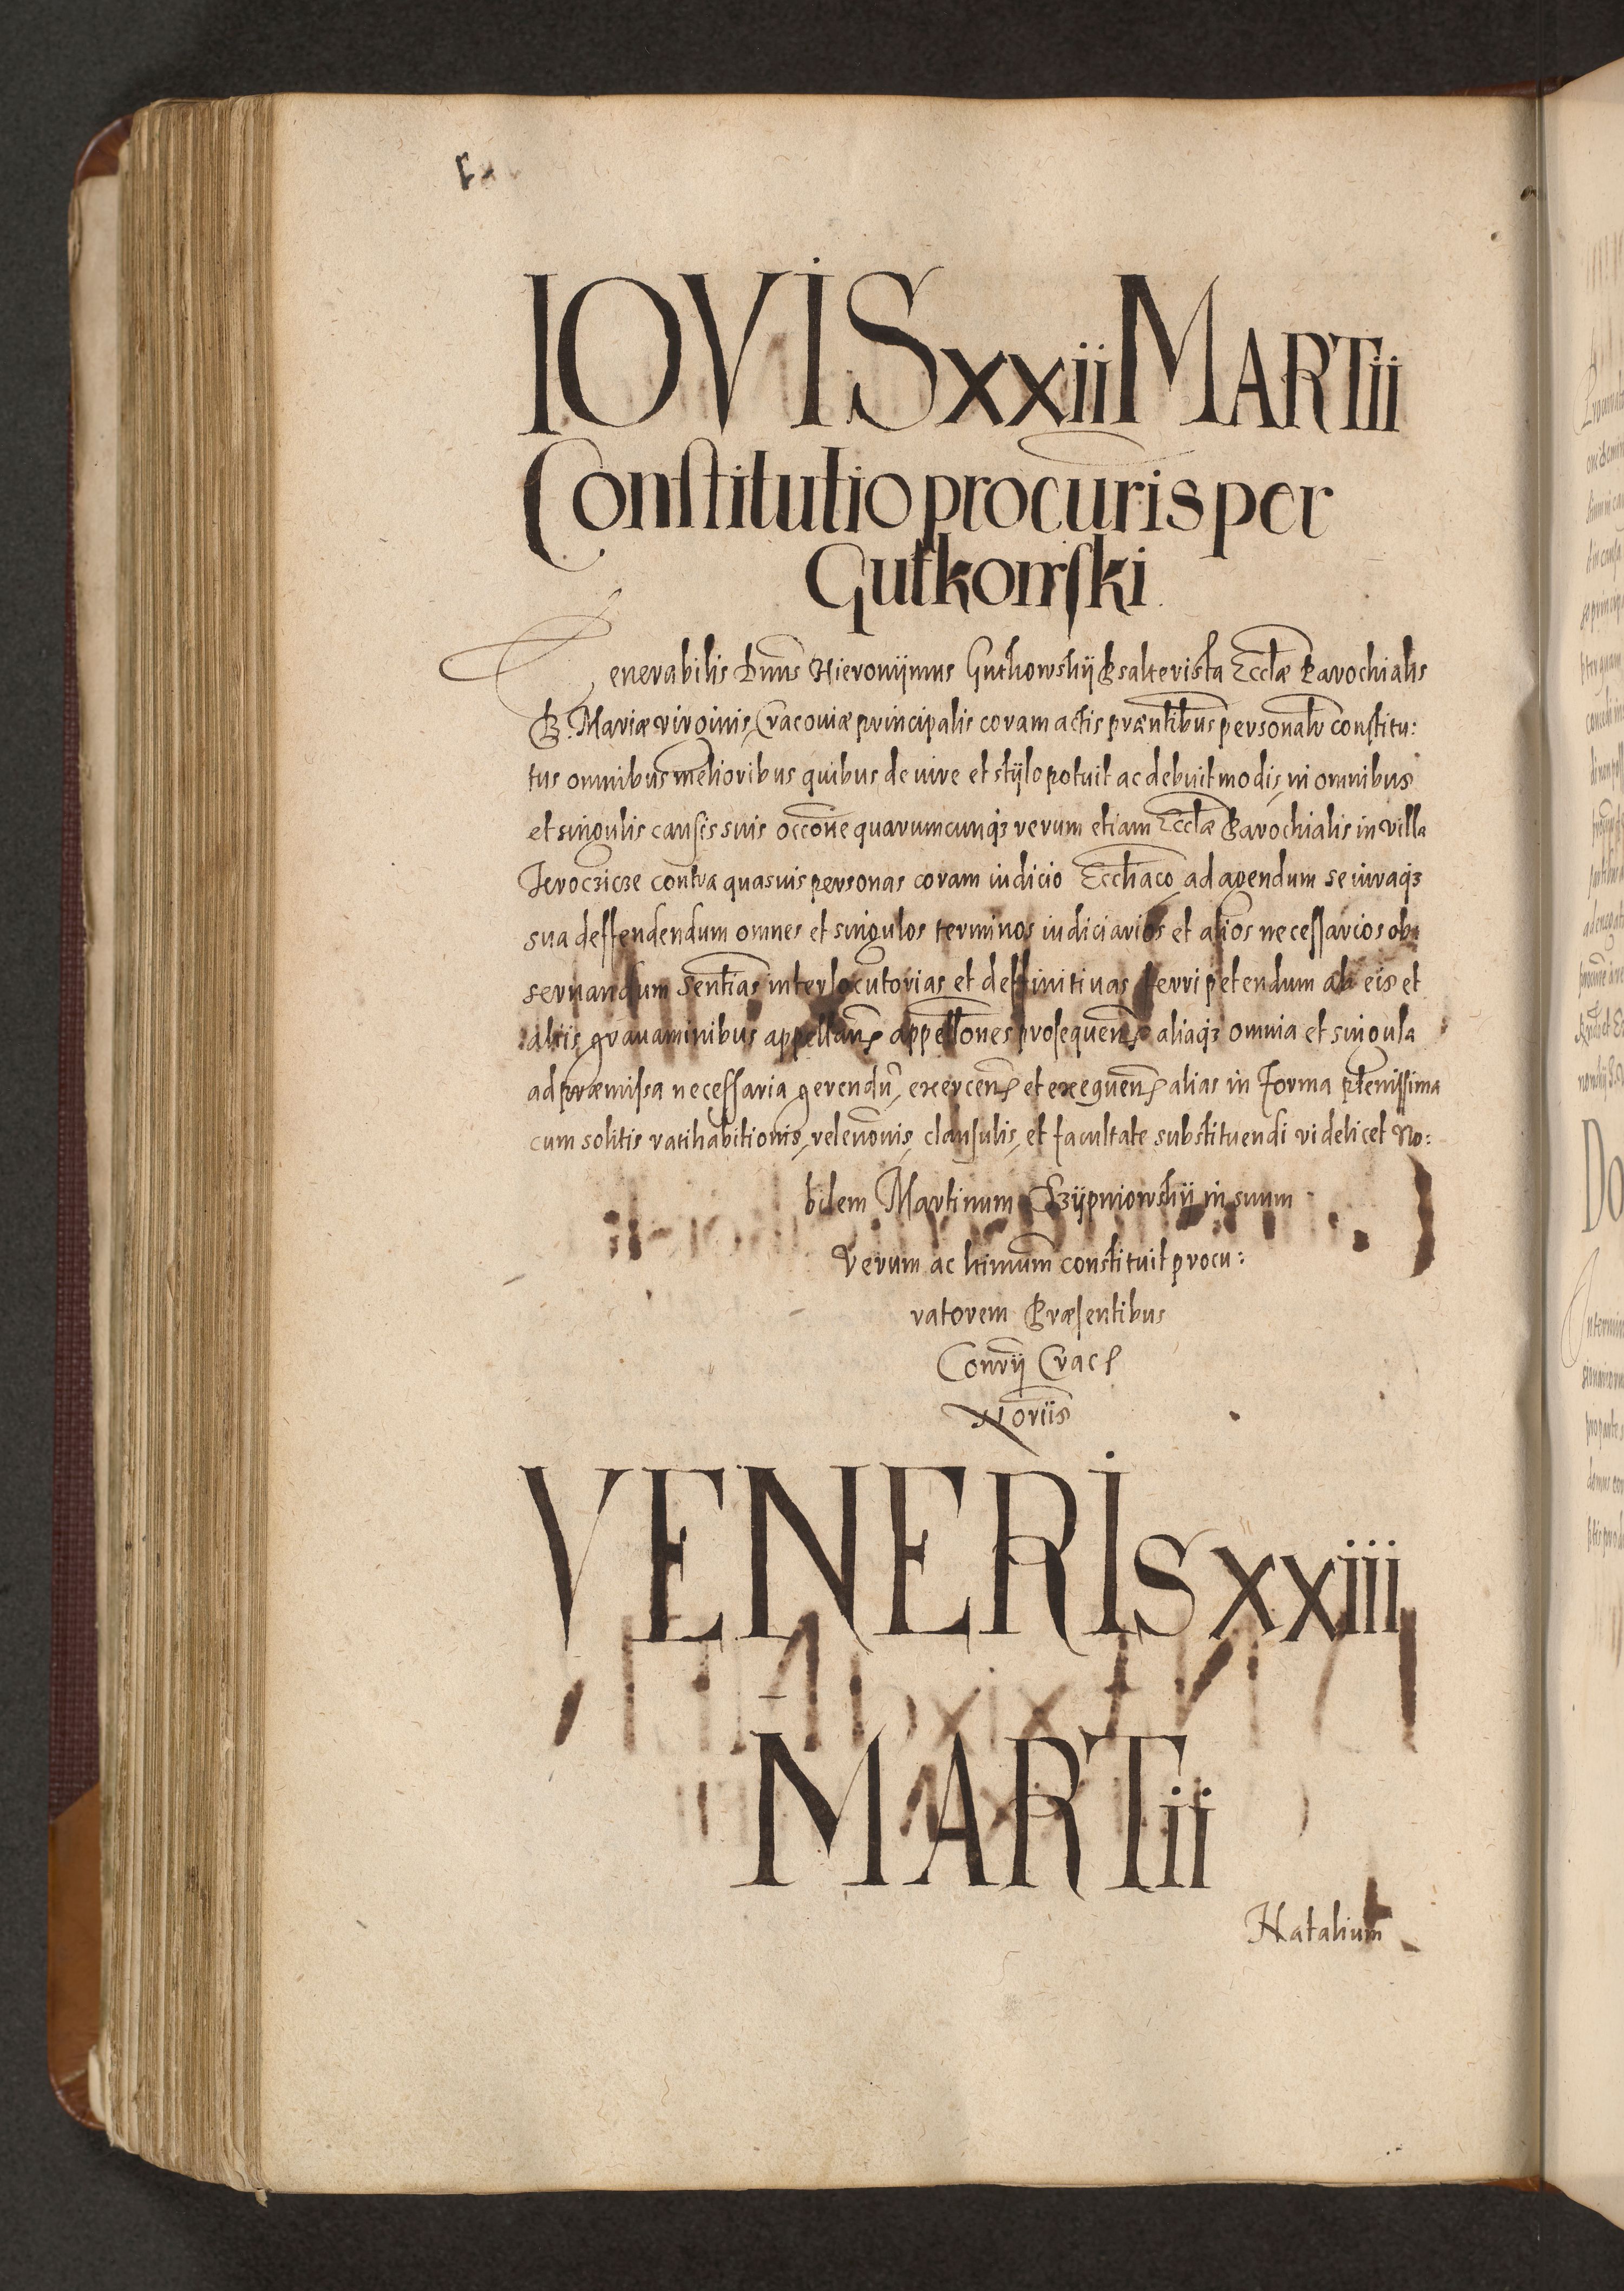 IOVIS xxii MARTii
Constitutio procuris per
Gutkowski
Venerabilis Dnus Hieronÿmus Guthowshÿ Psalterista Ecclæ Parochialis
B. Mariæ virginis Cracoviæ principalis coram actis præntibus personalr constitu:
tus omnibus melioribus quibus de iure et stÿlo potuit ac debuit modis in omnibus
et singulis causis suis occone quarumcunqz verum etiam Ecclæ Parochialis in villa
Jeroczicze contra quasuis personas coram iudicio Eccliaco ad agendum se iuraqz
sua deffendendum omnes et singulos terminos iudiciarios et alios necessarios ob:
seruandum Sentias interlocutorias et deffinitiuas ferri petendum ab eis et
aliis grauaminibus appellan appellones prosequen aliaqz omnia et singula
ad præmissa necessaria gerendu, exercen et exequen alias in forma plenissima
cum solitis ratihabitionis, releuonis, clausulis, et facultate substituendi videlicet No:
bilem Martinum Szÿpniowshÿ in suum
verum ac ltimum constituit procu:
ratorem Præsentibus
Conrÿ Crac
Noriis
VENERIS xxiii
MARTii
Natalium